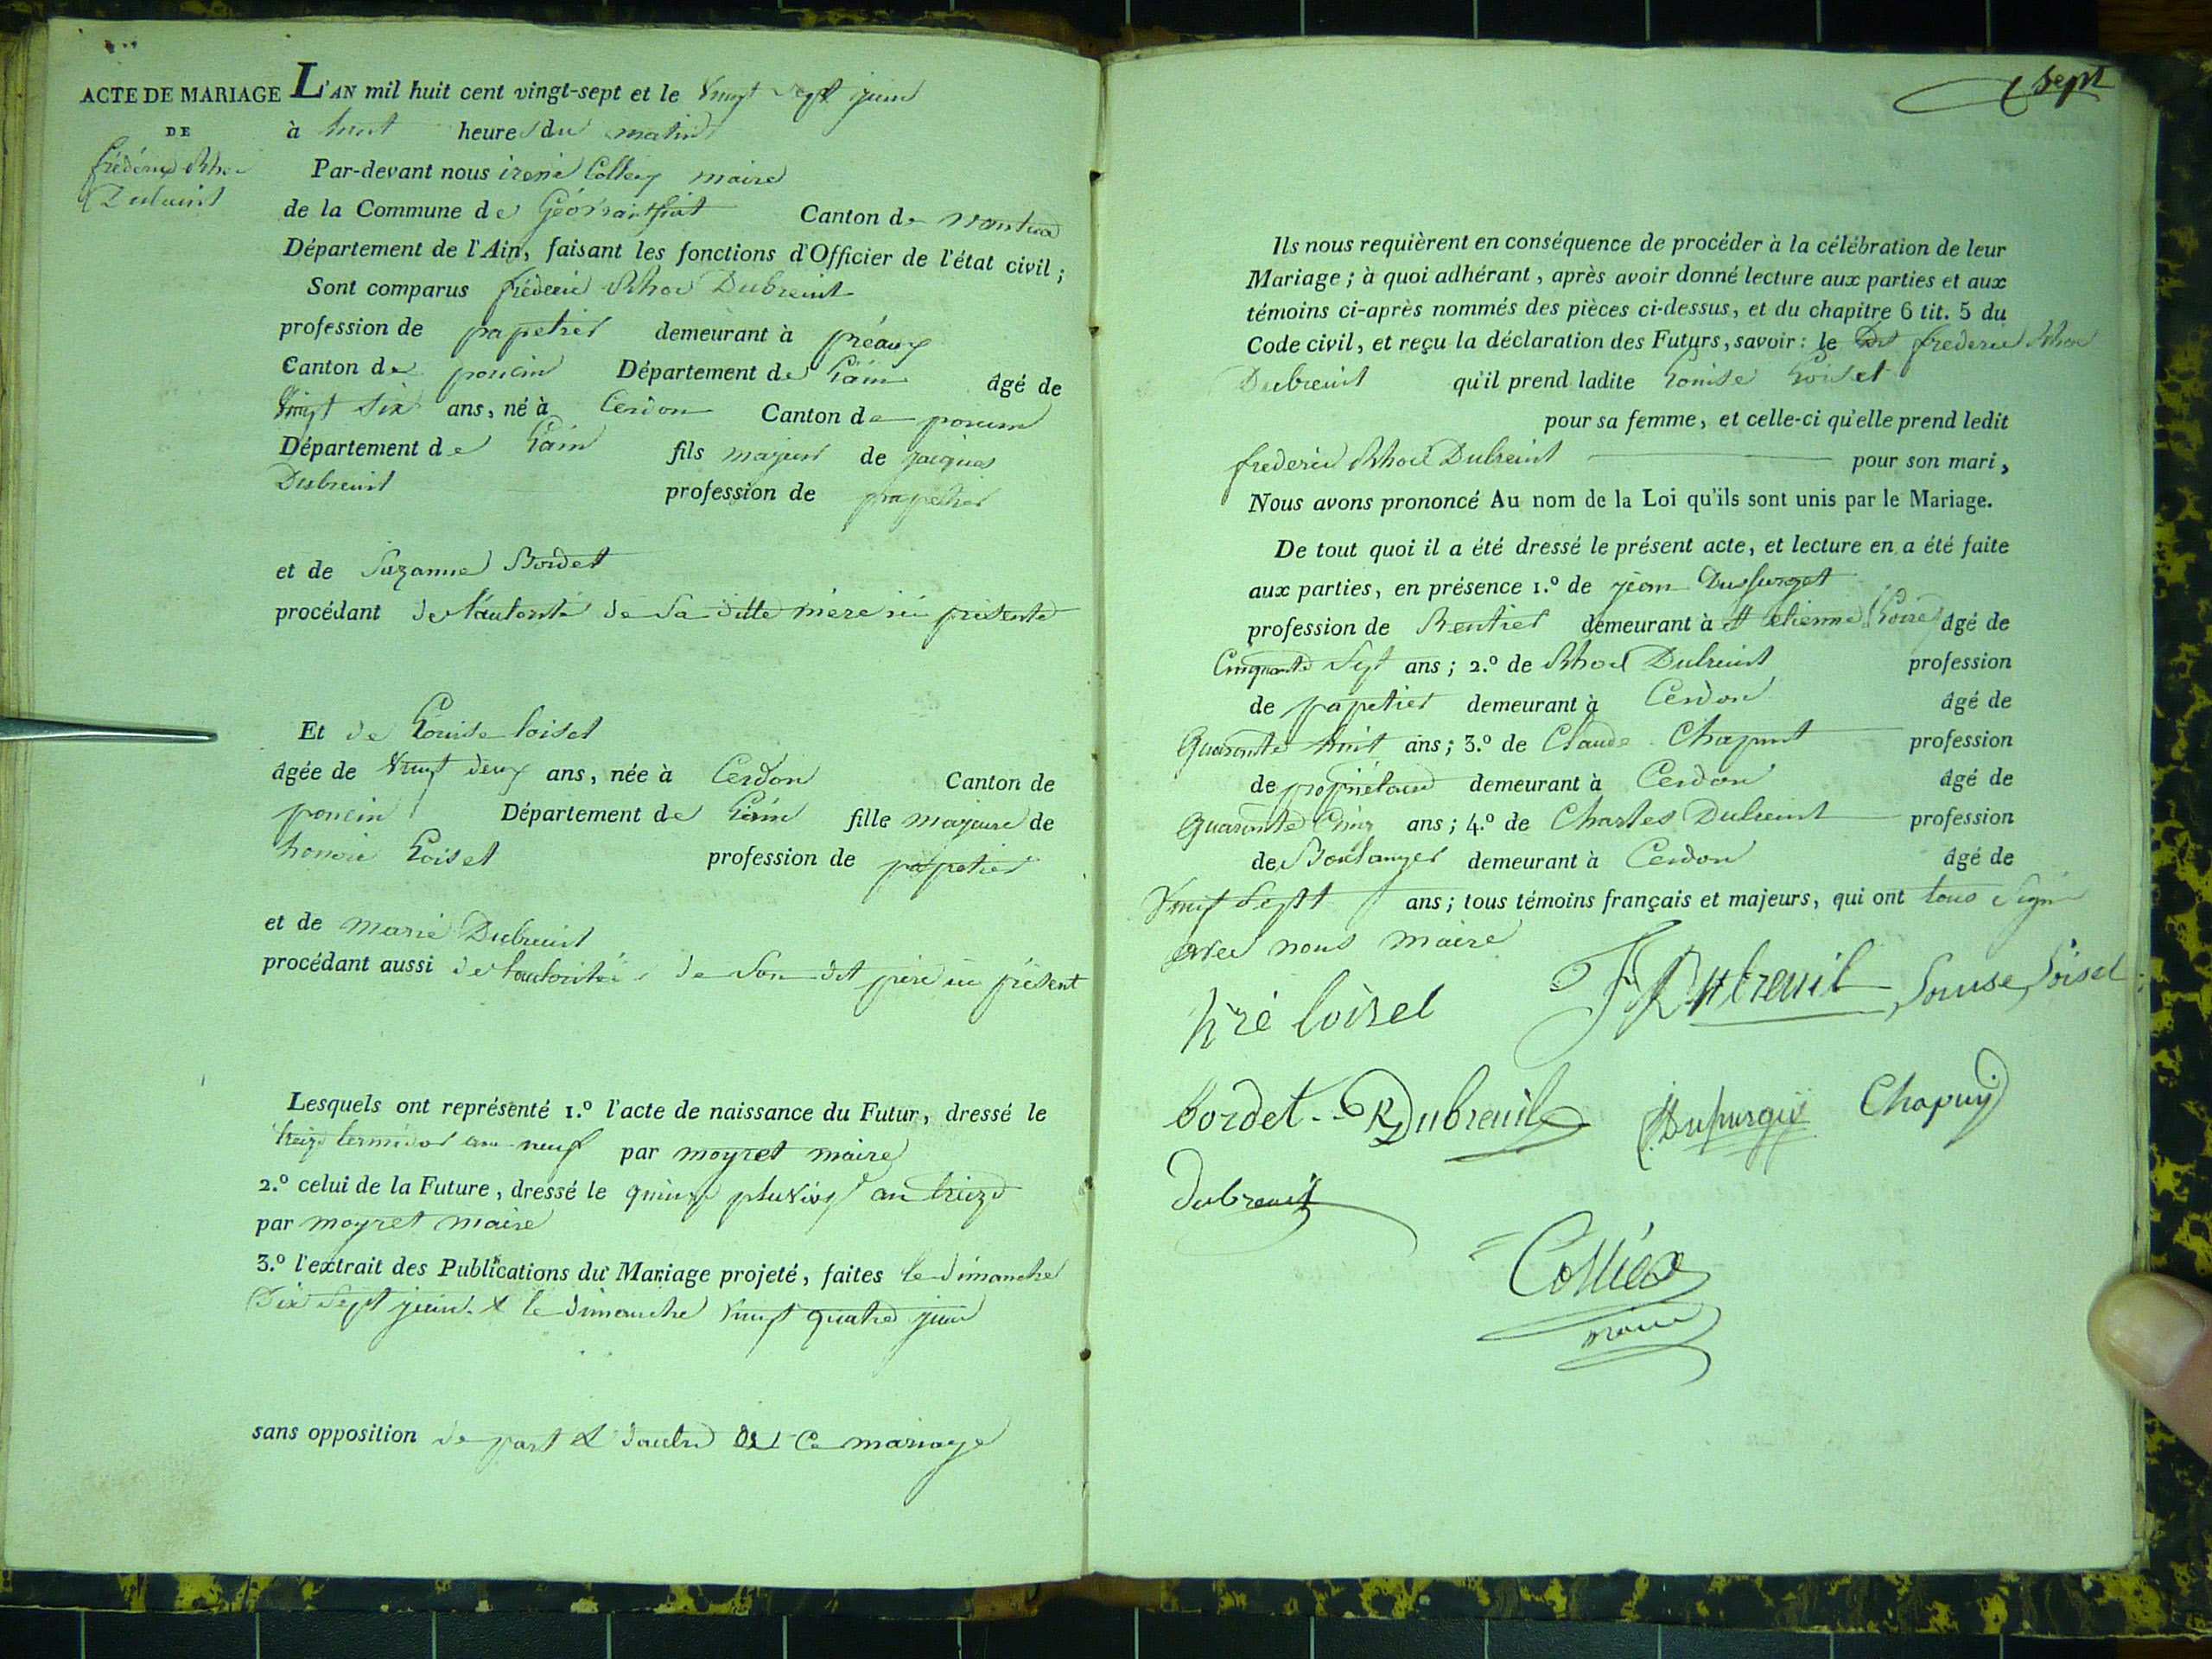 ACTE DE MARIAGE
DE
frédéric Rhoe
Dubreuil
L'AN mil huit cent vingt-sept et le vingt sept juin
à huit heures du matin
Par-devant nous irené Colliex maire
de la Commune de Géovraissiat Canton de nantua
Département de l'Ain, faisant les fonctions d'Officier de l'état civil ;
Sont comparus fréderic Rhoe Dubreuil
profession de papetier demeurant à préaux
Canton de poncin Département de l'ain âgé de
vingt six ans, né à Cerdon Canton de poncin
Département de l'ain fils majeur de jacques
Dubreuil profession de papetier
et de Suzanne Bordet
procédant de l'autorité de Sa ditte mère ici présente
Et de Louise loisel
âgée de vingt deux ans, née à Cerdon Canton de
poncin Département de l'ain fille majeure de
honoré Loisel profession de papetier
et de marie Dubreuil
procédant aussi de l'autorité de Son dit père ici présent
Lesquels ont représenté 1.º l'acte de naissance du Futur, dressé le
treize termidor an neuf par moyret maire
2.º celui de la Future, dressé le quinze pluviose an treize
par moyret maire
3.º l'extrait des Publications du Mariage projeté, faites le dimanche
Dix Sept juin & le dimanche vingt quatre juin
sans opposition de part & dautre de Ce mariage
sept
Ils nous requièrent en conséquence de procéder à la célébration de leur
Mariage ; à quoi adhérant, après avoir donné lecture aux parties et aux
témoins ci-après nommés des pièces ci-dessus, et du chapitre 6 tit. 5 du
Code civil, et reçu la déclaration des Futurs, savoir : le Dt frederic Rhoe
Dubreuil qu'il prend ladite Louise Loisel
pour sa femme, et celle-ci qu'elle prend ledit
frederic Rhoe Dubreuil pour son mari,
Nous avons prononcé Au nom de la Loi qu'ils sont unis par le Mariage.
De tout quoi il a été dressé le présent acte, et lecture en a été faite
aux parties, en présence 1.º de jean Dussurget
profession de Rentier demeurant à St etienne Loire âgé de
Cinquante Sept ans ; 2.º de Rhoe Dubreuil profession
de papetier demeurant à Cerdon âgé de
Quarante huit ans ; 3.º de Claude Chapuit profession
de propriétaire demeurant à Cerdon âgé de
Quarante Cinq ans ; 4.º de Charles Dubreuil profession
de Boulanger demeurant à Cerdon âgé de
Vingt Sept ans ; tous témoins français et majeurs, qui ont tous Signé
avec nous maire
hré loisel FR Dubreuil Louise Loisel
bordet R Dubreuil Chapuy
dubreuil
Colliex
maire